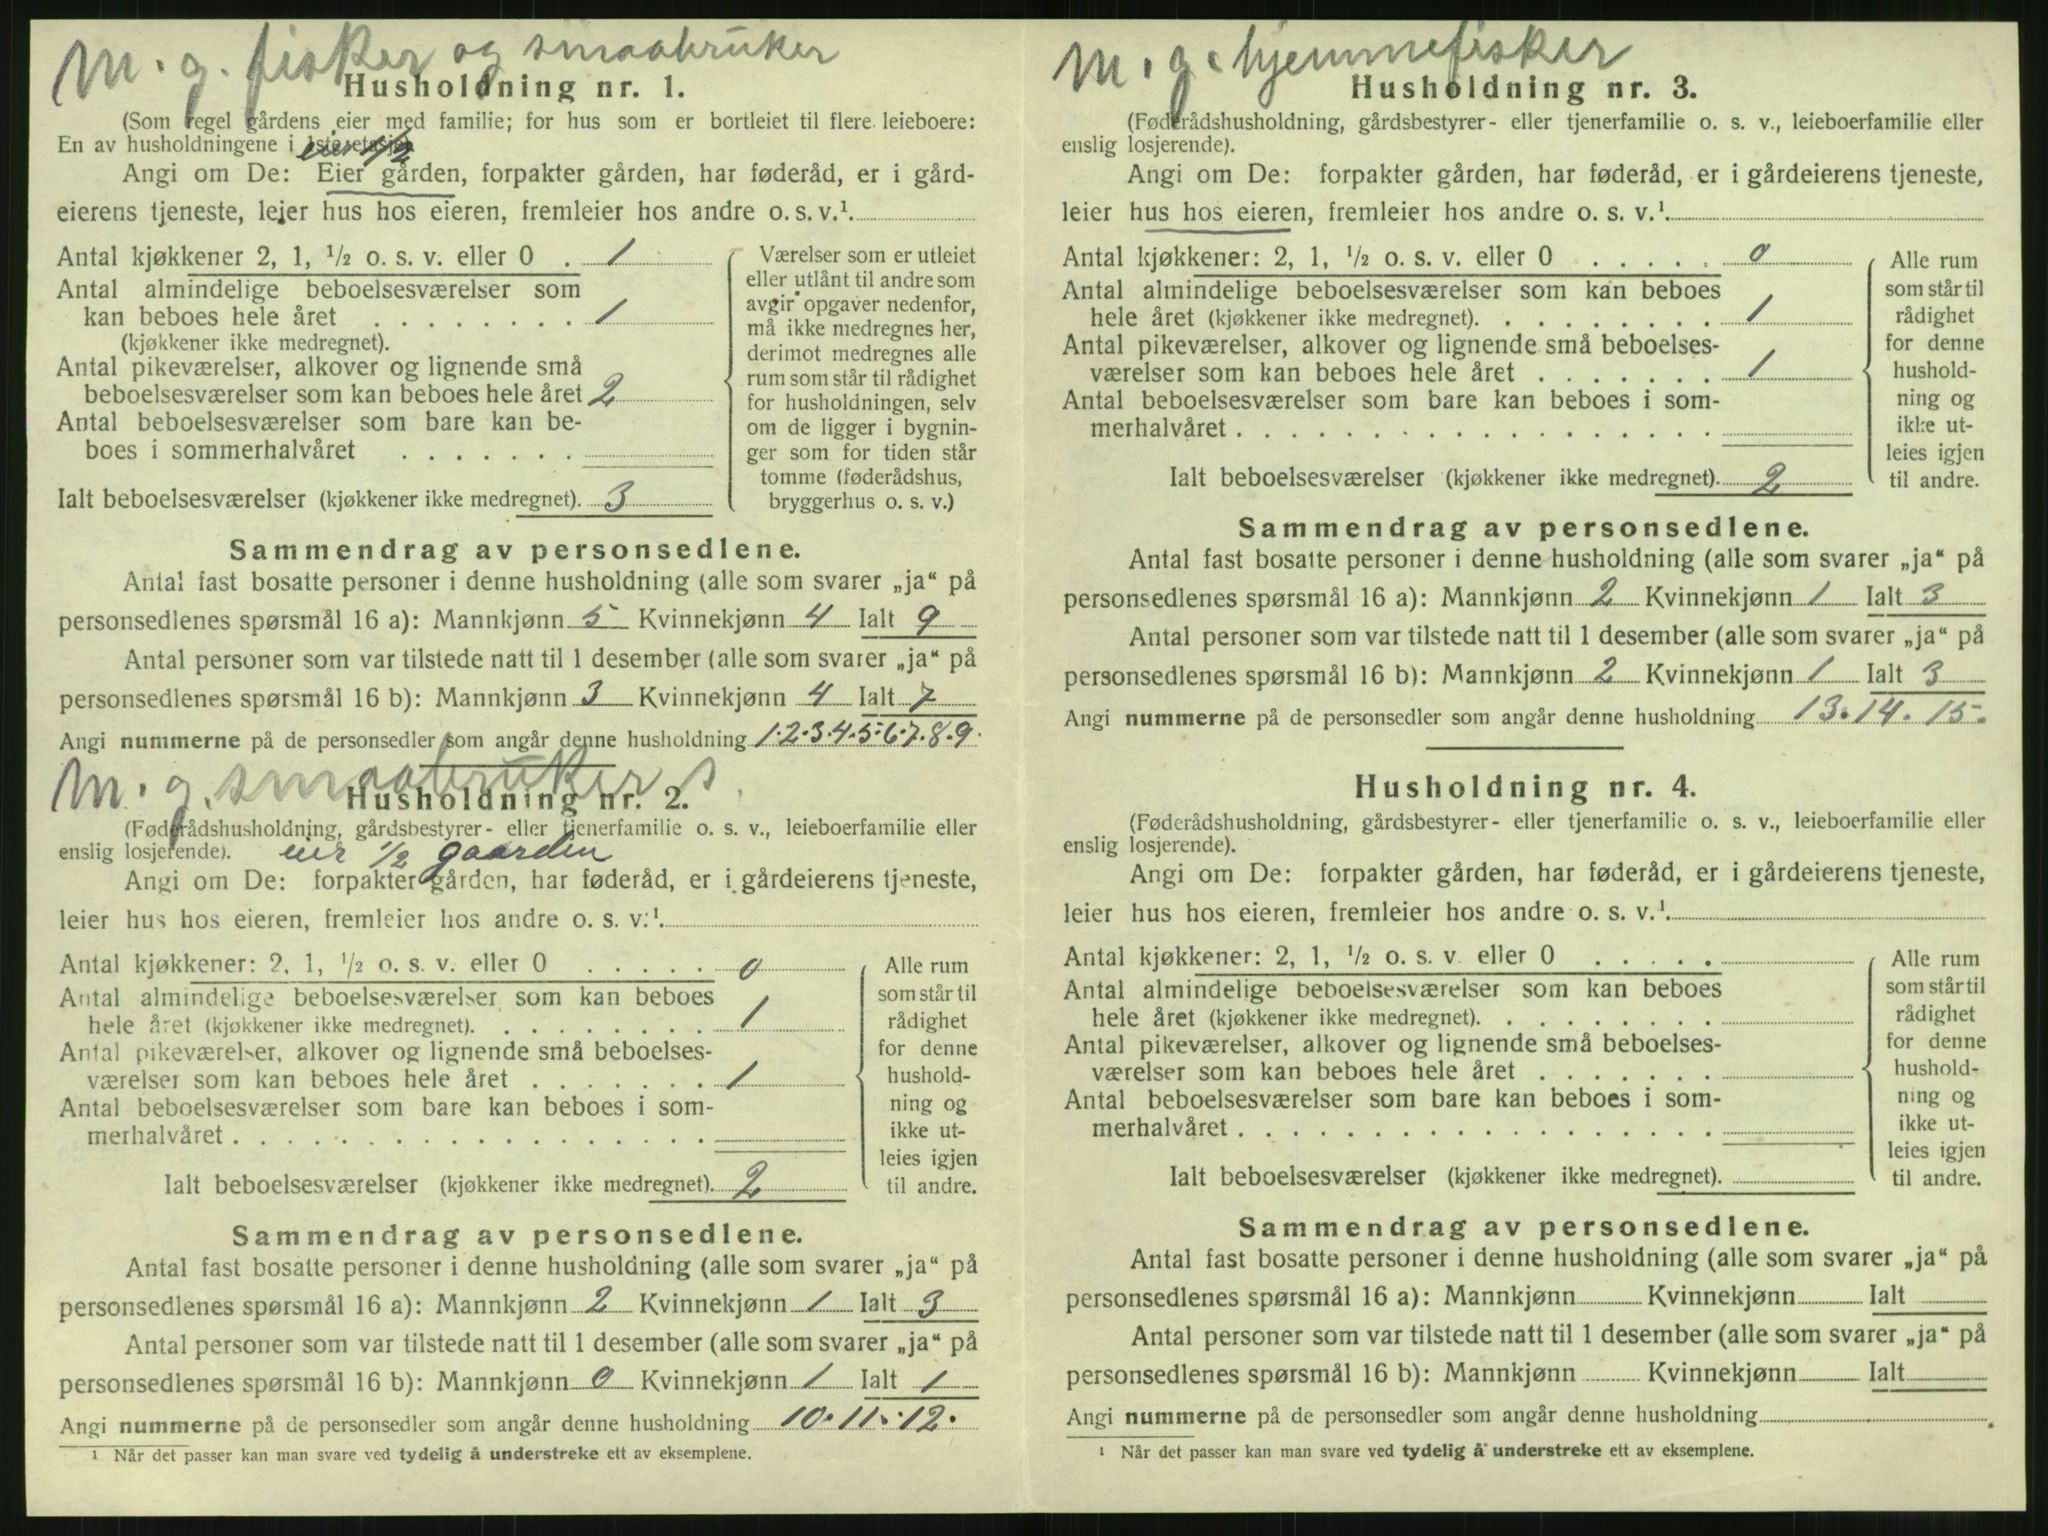 M. g. fisker og smaabruker
Husholdning nr. 1.
(Som regel gårdens eier med familie; for hus som er bortleiet til flere leieboere:
En av husholdningene i 1ste etasje).
eier 1/2
Angi om De: Eier gården, forpakter gården, har føderåd, er i gård-
eierens tjeneste, leier hus hos eieren, fremleier hos andre o. s. v.¹
Antal kjøkkener 2, 1, ½ o. s. v. eller 0 . 1
Antal almindelige beboelsesværelser som
kan beboes hele året . . . . . . . . 1
(kjøkkener ikke medregnet).
Antal pikeværelser, alkover og lignende små
beboelsesværelser som kan beboes hele året 2
Antal beboelsesværelser som bare kan be-
boes i sommerhalvåret . . . . . . .
Ialt beboelsesværelser (kjøkkener ikke medregnet). 3
Værelser som er utleiet
eller utlånt til andre som
avgir opgaver nedenfor,
må ikke medregnes her,
derimot medregnes alle
rum som står til rådighet
for husholdningen, selv
om de ligger i bygnin-
ger som for tiden står
tomme (føderådshus,
bryggerhus o. s. v.)
Sammendrag av personsedlene.
Antal fast bosatte personer i denne husholdning (alle som svarer „ja“ på
personsedlenes spørsmål 16 a): Mannkjønn 5 Kvinnekjønn 4 Ialt 9
Antal personer som var tilstede natt til 1 desember (alle som svarer „ja“ på
personsedlenes spørsmål 16 b): Mannkjønn 3 Kvinnekjønn 4 Ialt 7
Angi nummerne på de personsedler som angår denne husholdning 1.2.3.4.5.6.7.8.9.
M. g. smaabruker s.
Husholdning nr. 2.
(Føderådshusholdning, gårdsbestyrer- eller tjenerfamilie o. s. v., leieboerfamilie eller
enslig losjerende). eier 1/2 gaarden
Angi om De: forpakter gården, har føderåd, er i gårdeierens tjeneste,
leier hus hos eieren, fremleier hos andre o. s. v.¹
Antal kjøkkener: 2, 1, ½ o. s. v. eller 0 . . . . . 0
Antal almindelige beboelsesværelser som kan beboes
hele året (kjøkkener ikke medregnet). . . . . . . . . 1
Antal pikeværelser, alkover og lignende små beboelses-
værelser som kan beboes hele året . . . . . . . 1
Antal beboelsesværelser som bare kan beboes i som-
merhalvåret . . . . . . . . . . . . . . . . . .
Ialt beboelsesværelser (kjøkkener ikke medregnet). 2
Alle rum
som står til
rådighet
for denne
hushold-
ning og
ikke ut-
leies igjen
til andre.
Sammendrag av personsedlene.
Antal fast bosatte personer i denne husholdning (alle som svarer „ja“ på
personsedlenes spørsmål 16 a): Mannkjønn 2 Kvinnekjønn 1 Ialt 3
Antal personer som var tilstede natt til 1 desember (alle som svarer „ja“ på
personsedlenes spørsmål 16 b): Mannkjønn 0 Kvinnekjønn 1 Ialt 1
Angi nummerne på de personsedler som angår denne husholdning 10.11.12.
¹ Når det passer kan man svare ved tydelig å understreke ett av eksemplene.
M. g. hjemmefisker
Husholdning nr. 3.
(Føderådshusholdning, gårdsbestyrer- eller tjenerfamilie o. s. v., leieboerfamilie eller
enslig losjerende).
Angi om De: forpakter gården, har føderåd, er i gårdeierens tjeneste,
leier hus hos eieren, fremleier hos andre o. s. v.¹
Antal kjøkkener: 2, 1, ½ o. s. v. eller 0 . . . . . 0
Antal almindelige beboelsesværelser som kan beboes
hele året (kjøkkener ikke medregnet). . . . . . . . . 1
Antal pikeværelser, alkover og lignende små beboelses-
værelser som kan beboes hele året . . . . . . . 1
Antal beboelsesværelser som bare kan beboes i som-
merhalvåret . . . . . . . . . . . . . . . . . .
Ialt beboelsesværelser (kjøkkener ikke medregnet). 2
Alle rum
som står til
rådighet
for denne
hushold-
ning og
ikke ut-
leies igjen
til andre.
Sammendrag av personsedlene.
Antal fast bosatte personer i denne husholdning (alle som svarer „ja“ på
personsedlenes spørsmål 16 a): Mannkjønn 2 Kvinnekjønn 1 Ialt 3
Antal personer som var tilstede natt til 1 desember (alle som svarer „ja“ på
personsedlenes spørsmål 16 b): Mannkjønn 2 Kvinnekjønn 1 Ialt 3
Angi nummerne på de personsedler som angår denne husholdning 13.14.15.
Husholdning nr. 4.
(Føderådshusholdning, gårdsbestyrer- eller tjenerfamilie o. s. v., leieboerfamilie eller
enslig losjerende).
Angi om De: forpakter gården, har føderåd, er i gårdeierens tjeneste,
leier hus hos eieren, fremleier hos andre o. s. v.¹
Antal kjøkkener: 2, 1, ½ o. s. v. eller 0 . . . . .
Antal almindelige beboelsesværelser som kan beboes
hele året (kjøkkener ikke medregnet). . . . . . . . .
Antal pikeværelser, alkover og lignende små beboelses-
værelser som kan beboes hele året . . . . . . .
Antal beboelsesværelser som bare kan beboes i som-
merhalvåret . . . . . . . . . . . . . . . . . .
Ialt beboelsesværelser (kjøkkener ikke medregnet).
Alle rum
som står til
rådighet
for denne
hushold-
ning og
ikke ut-
leies igjen
til andre.
Sammendrag av personsedlene.
Antal fast bosatte personer i denne husholdning (alle som svarer „ja“ på
personsedlenes spørsmål 16 a): Mannkjønn Kvinnekjønn Ialt
Antal personer som var tilstede natt til 1 desember (alle som svarer „ja“ på
personsedlenes spørsmål 16 b): Mannkjønn Kvinnekjønn Ialt
Angi nummerne på de personsedler som angår denne husholdning
¹ Når det passer kan man svare ved tydelig å understreke ett av eksemplene.